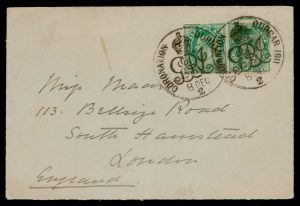 CORONATION DURBAR 1911
8 DEC
2
Miss Maan
113. Bellsize Road
South Hampstead
London
England